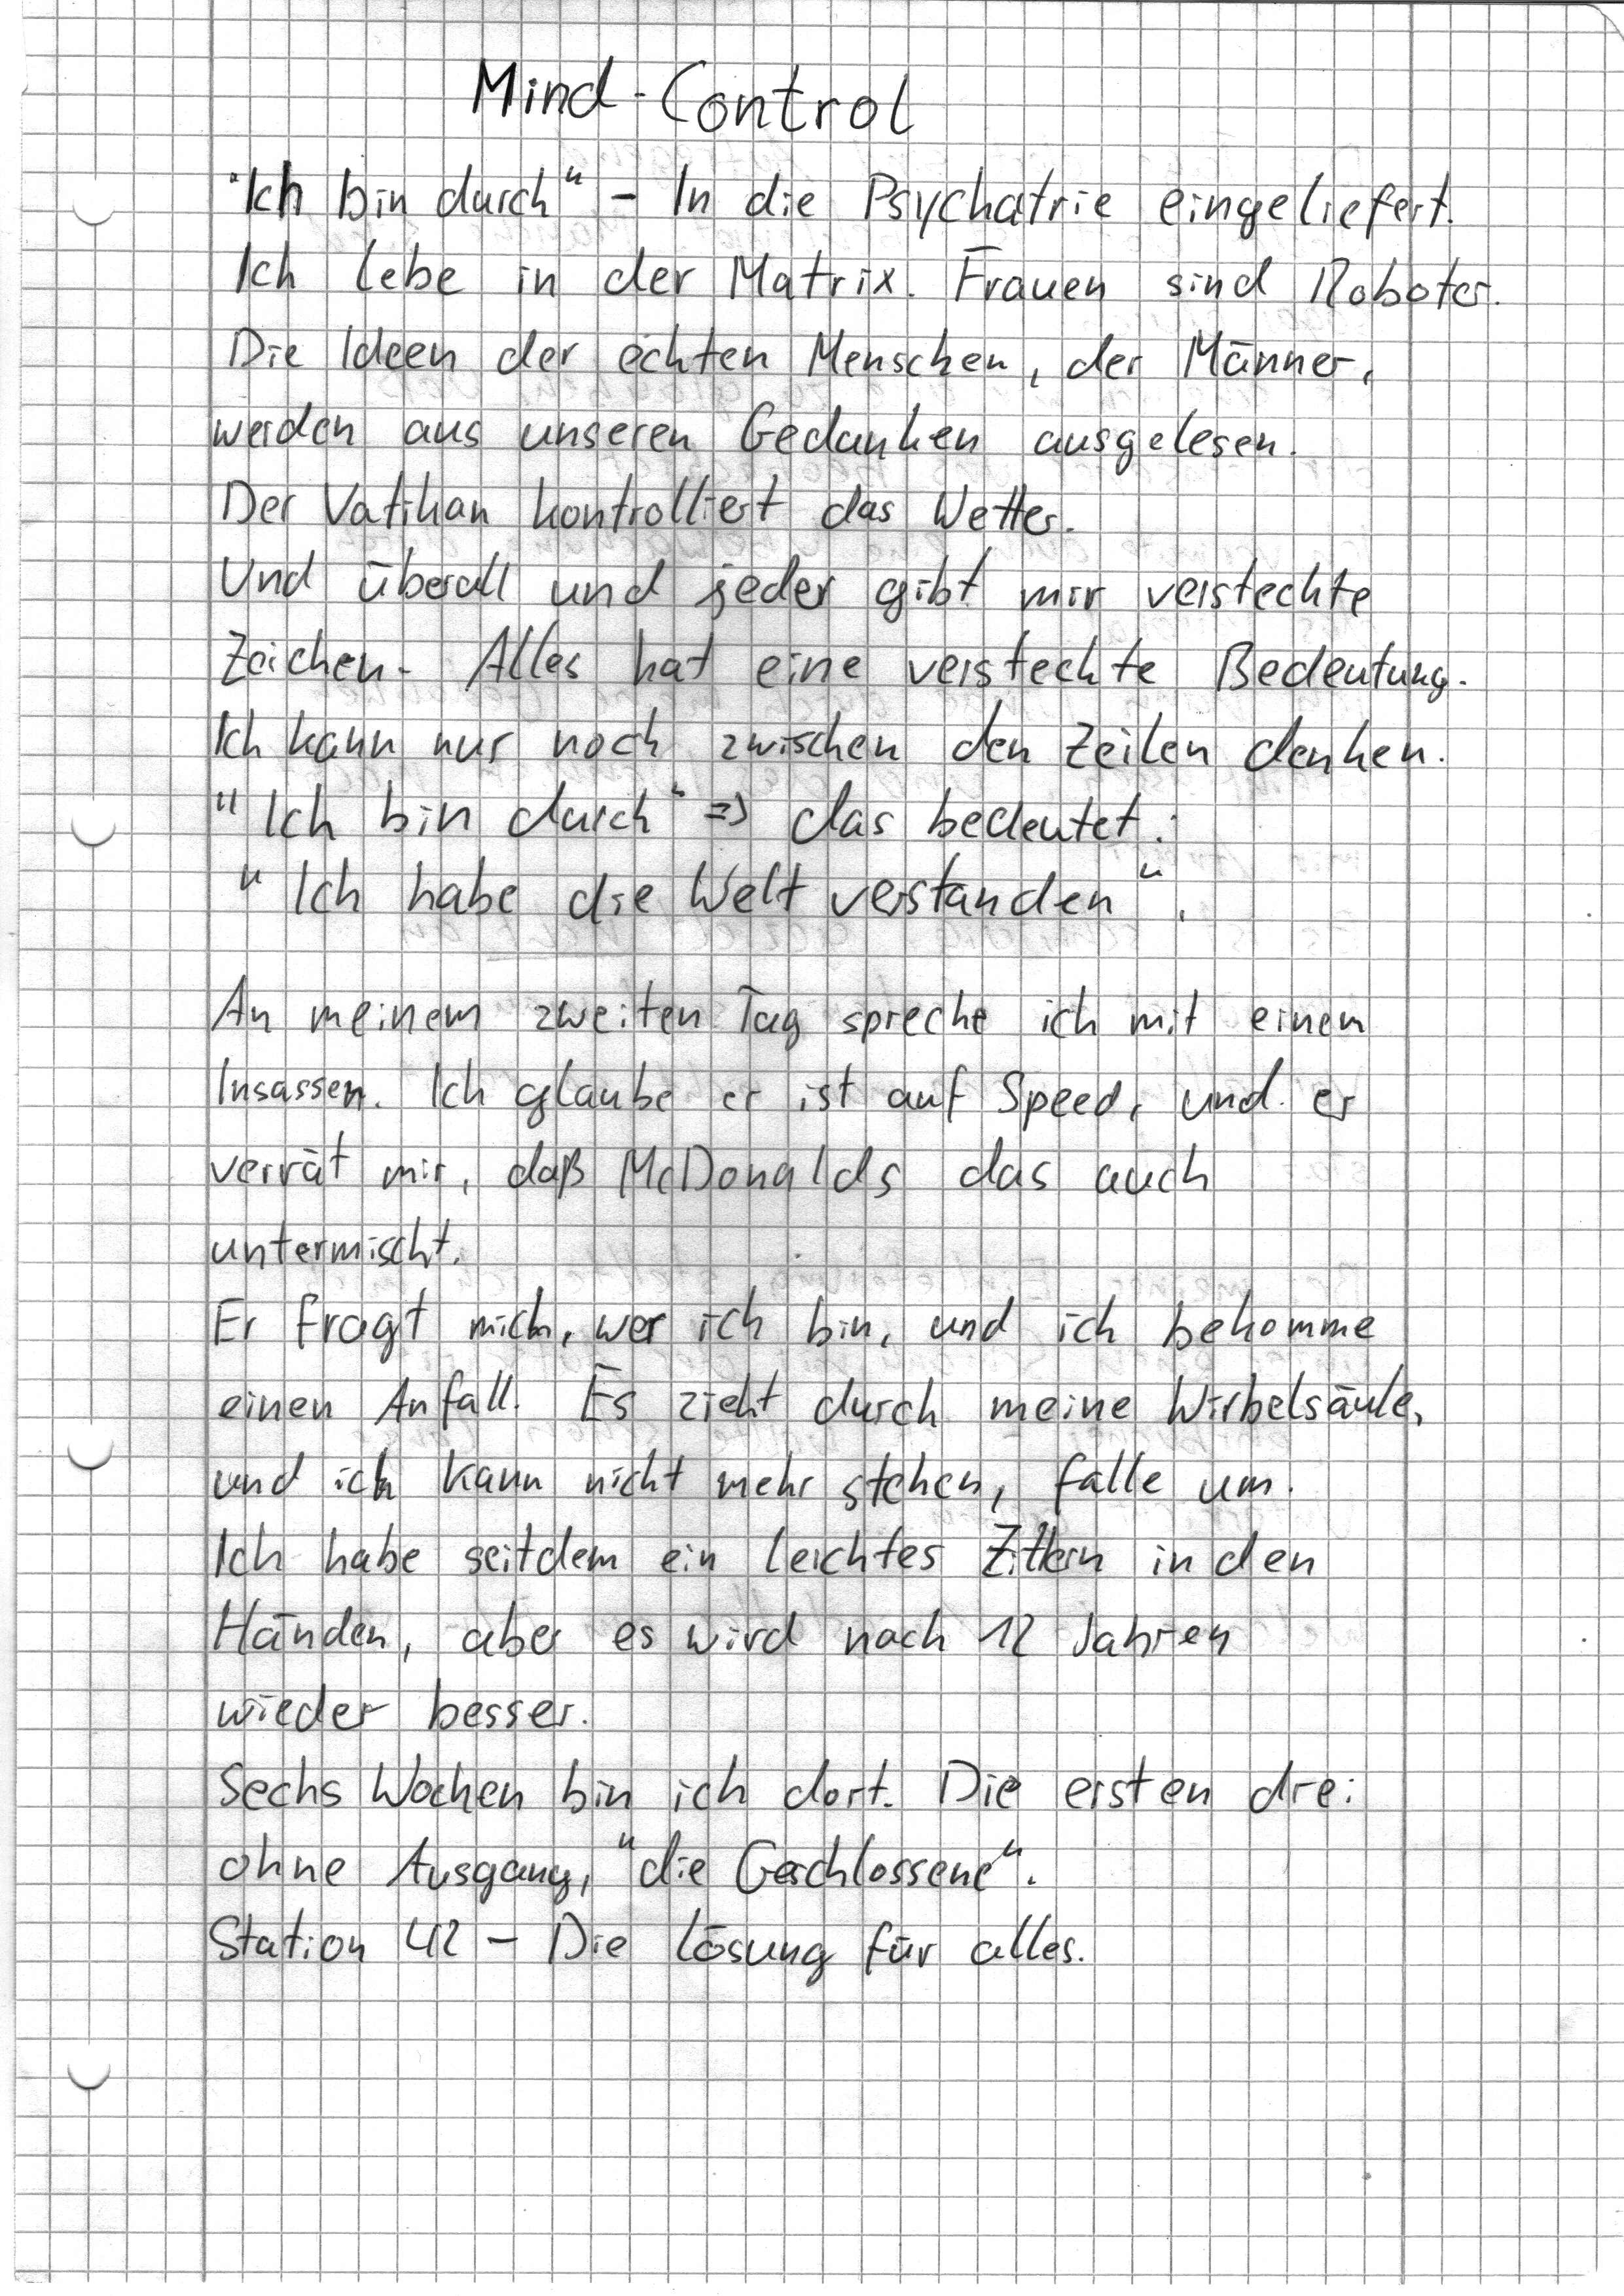 Mind-Control
"Ich bin durch" - In die Psychatrie eingeliefert.
Ich lebe in der Matrix. Frauen sind Roboter.
Die Ideen der echten Menschen, der Männer,
werden aus unseren Gedanken ausgelesen.
Der Vatikan kontrolliert das Wetter.
Und überall und jeder gibt mir versteckte
Zeichen. Alles hat eine versteckte Bedeutung.
Ich kann nur noch zwischen den Zeilen denken.
"Ich bin durch" => das bedeutet:
"Ich habe die Welt verstanden".
An meinem zweiten Tag spreche ich mit einem
Insassen. Ich glaube er ist auf Speed, und er
verrät mir, daß McDonalds das auch
untermischt.
Er fragt mich, wer ich bin, und ich bekomme
einen Anfall. Es zieht durch meine Wirbelsäule,
und ich kann nicht mehr stehen, falle um.
Ich habe seitdem ein leichtes Zittern in den
Händen, aber es wird nach 12 Jahren
wieder besser.
Sechs Wochen bin ich dort. Die ersten drei
ohne Ausgang, "die Geschlossene".
Station 42 - Die Lösung für alles.